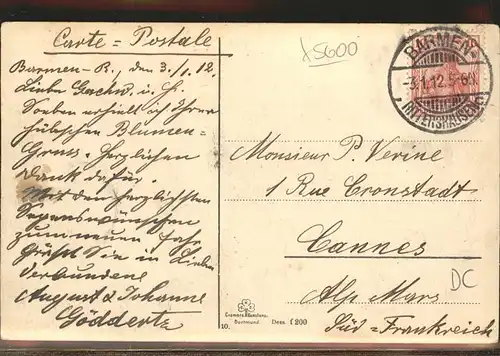 Carte = Postale
x5600
BARMEN
-3.1.12.5-6N
RITTERSHAUSEN
Barmen-R., den 3./1. 12.
Liebe Geschw. i. H.
Soeben erhielt ich Ihren
hübschen Blumen=
Gruss. Herzlichen
Dank dafür.
Mit den herzlichsten
Segenswünschen
zum neuen Jahr
Grüßt Sie in Liebe
Verbundene
August & Johanne
Göddertz
Monsieur P. Verine
1 Rue Cronstadt
Cannes
Alp Mars
Süd=Frankreich
DC
10.
Dortmund
Dess. f 200